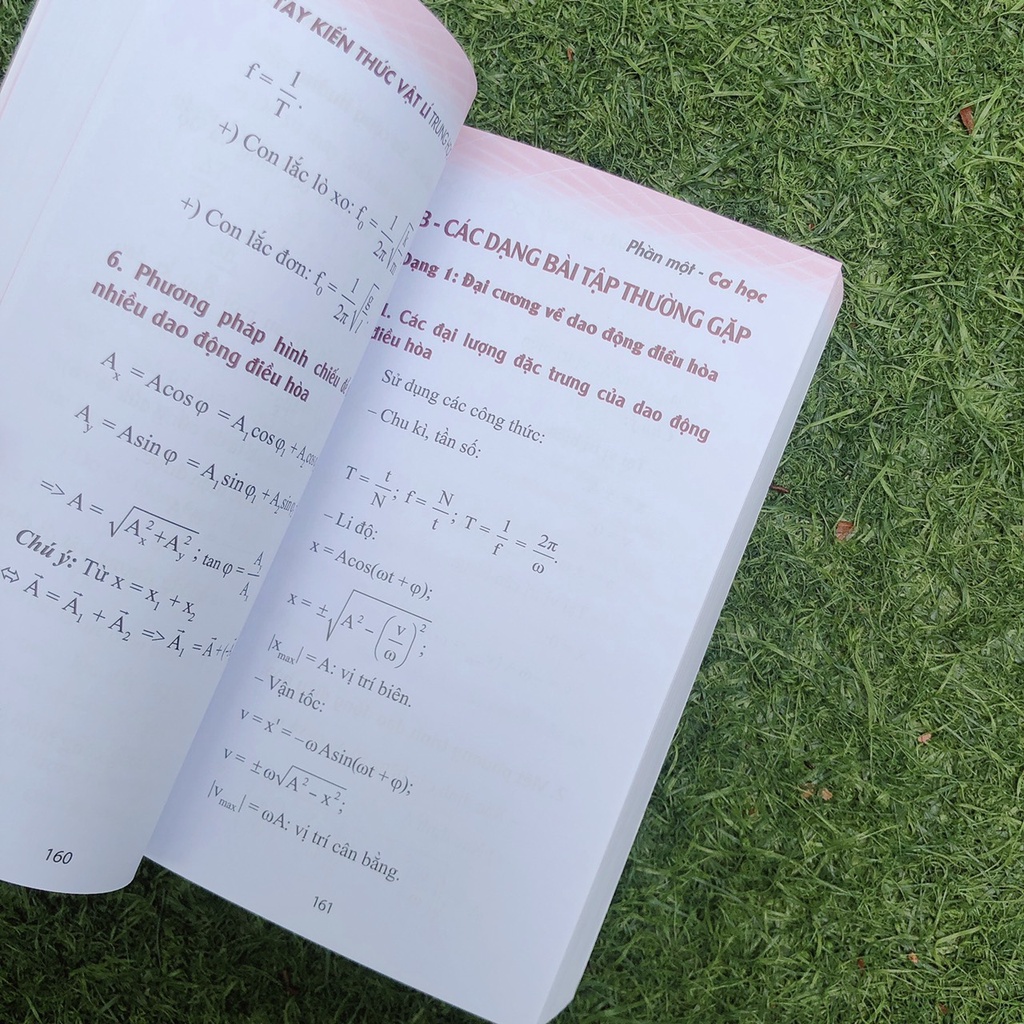 TAY KIẾN THỨC VẬT LÍ TRUNG
f = 1/T.
+) Con lắc lò xo: f₀ = 1/2π √k/m
+) Con lắc đơn: f₀ = 1/2π √g/l
6. Phương pháp hình chiếu
nhiều dao động điều hòa
Aₓ = Acosφ = A₁cosφ₁ + A₂cos
Aᵧ = Asinφ = A₁sinφ₁ + A₂sin
=> A = √(Aₓ² + Aᵧ²); tanφ =
Chú ý: Từ x = x₁ + x₂
⇔ A⃗ = A⃗₁ + A⃗₂ => A⃗₁ = A⃗ +
160
Phần một - Cơ học
B - CÁC DẠNG BÀI TẬP THƯỜNG GẶP
Dạng 1: Đại cương về dao động điều hòa
1. Các đại lượng đặc trưng của dao động
điều hòa
Sử dụng các công thức:
– Chu kì, tần số:
T = t/N; f = N/t; T = 1/f = 2π/ω.
– Li độ:
x = Acos(ωt + φ);
x = ±√(A² − (v/ω)²);
|xₘₐₓ| = A: vị trí biên.
– Vận tốc:
v = x' = −ωAsin(ωt + φ);
v = ±ω√(A² − x²);
|vₘₐₓ| = ωA: vị trí cân bằng.
161